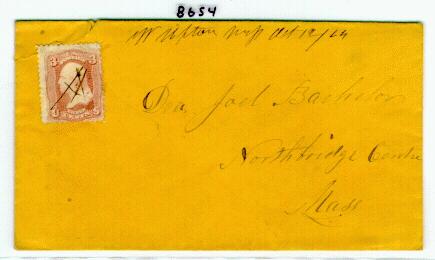 8654
W Upton Mass Oct 12/64
3 3
Dea. Joel Bachelor
Northbridge Centre
Mass